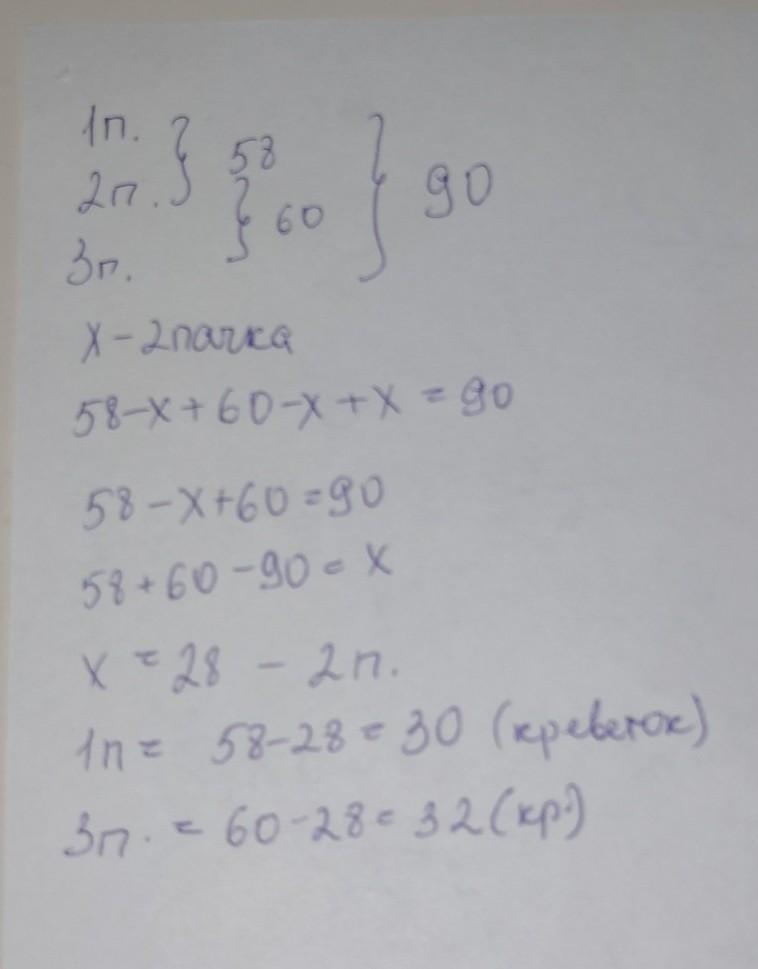 1п. } 58 } 90
2п. } 60
3п.
х - 2 пачка
58-х+60-х+х = 90
58-х+60=90
58+60-90= х
х = 28 - 2п.
1п = 58-28= 30 (креветок)
3п. = 60-28= 32(кр.)